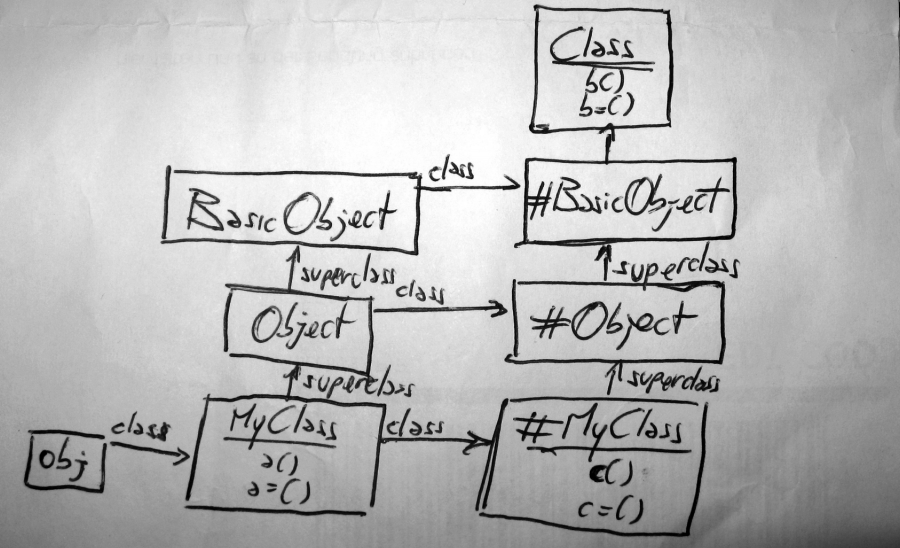 Class
b()
b=()
class
BasicObject
#BasicObject
superclass
superclass
class
Object
#Object
superclass
superclass
class
MyClass
class
#MyClass
obj
a()
a=()
c()
c=()